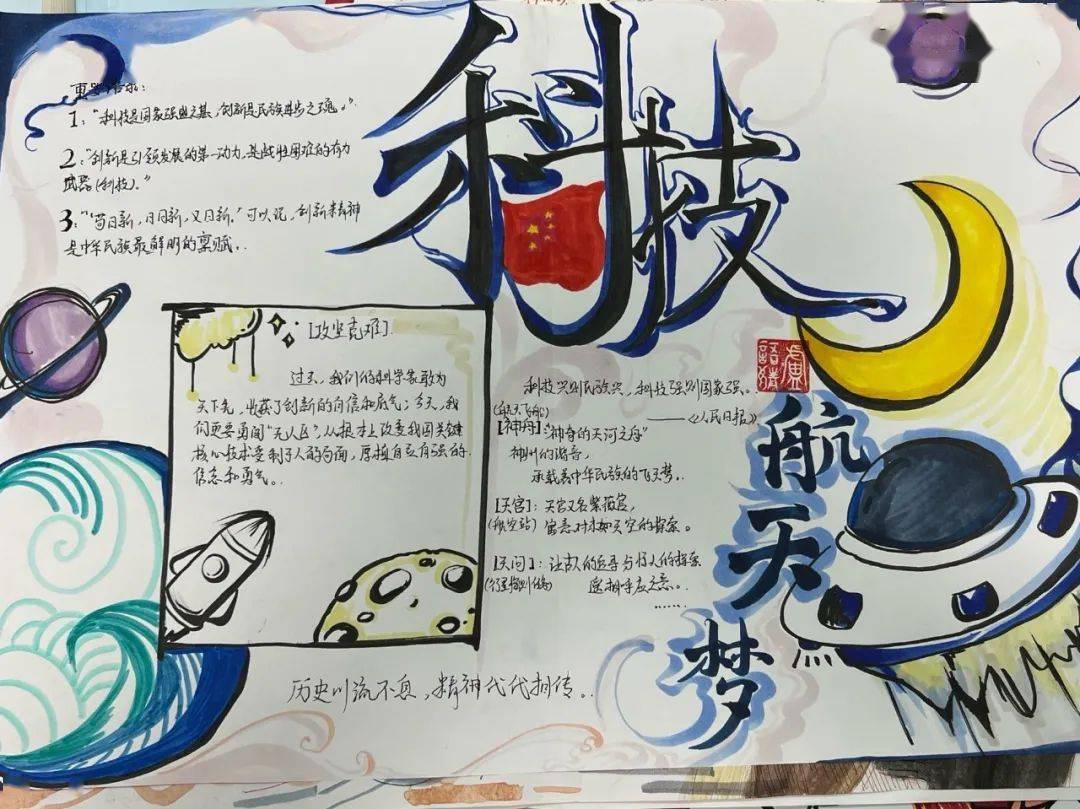 科技
1："科技是国家强盛之基，创新是民族进步之魂。"
2："创新是引领发展的第一动力，是战胜困难的有力
武器(科技)。"
3："'苟日新，日日新，又日新。'可以说，创新精神
是中华民族最鲜明的禀赋。
[攻坚克难]
过去，我们的科学家敢为
天下先，收获了创新的自信和底气；今天，我
们更要勇闯"无人区"，从根本上改变我国关键
核心技术受制于人的局面，厚植自立自强的
信念和勇气。
科技兴则民族兴，科技强则国家强。
——《人民日报》
(航天飞船)
[神舟]："神奇的天河之舟"
神州的谐音，
承载着中华民族的飞天梦。
[天宫]：天宫又名紫薇宫，
(航空站) 寓意对未知天空的探索。
[天问]：让古人的追寻与后人的探索
遥相呼应之意。
……
航天梦
历史川流不息，精神代代相传。